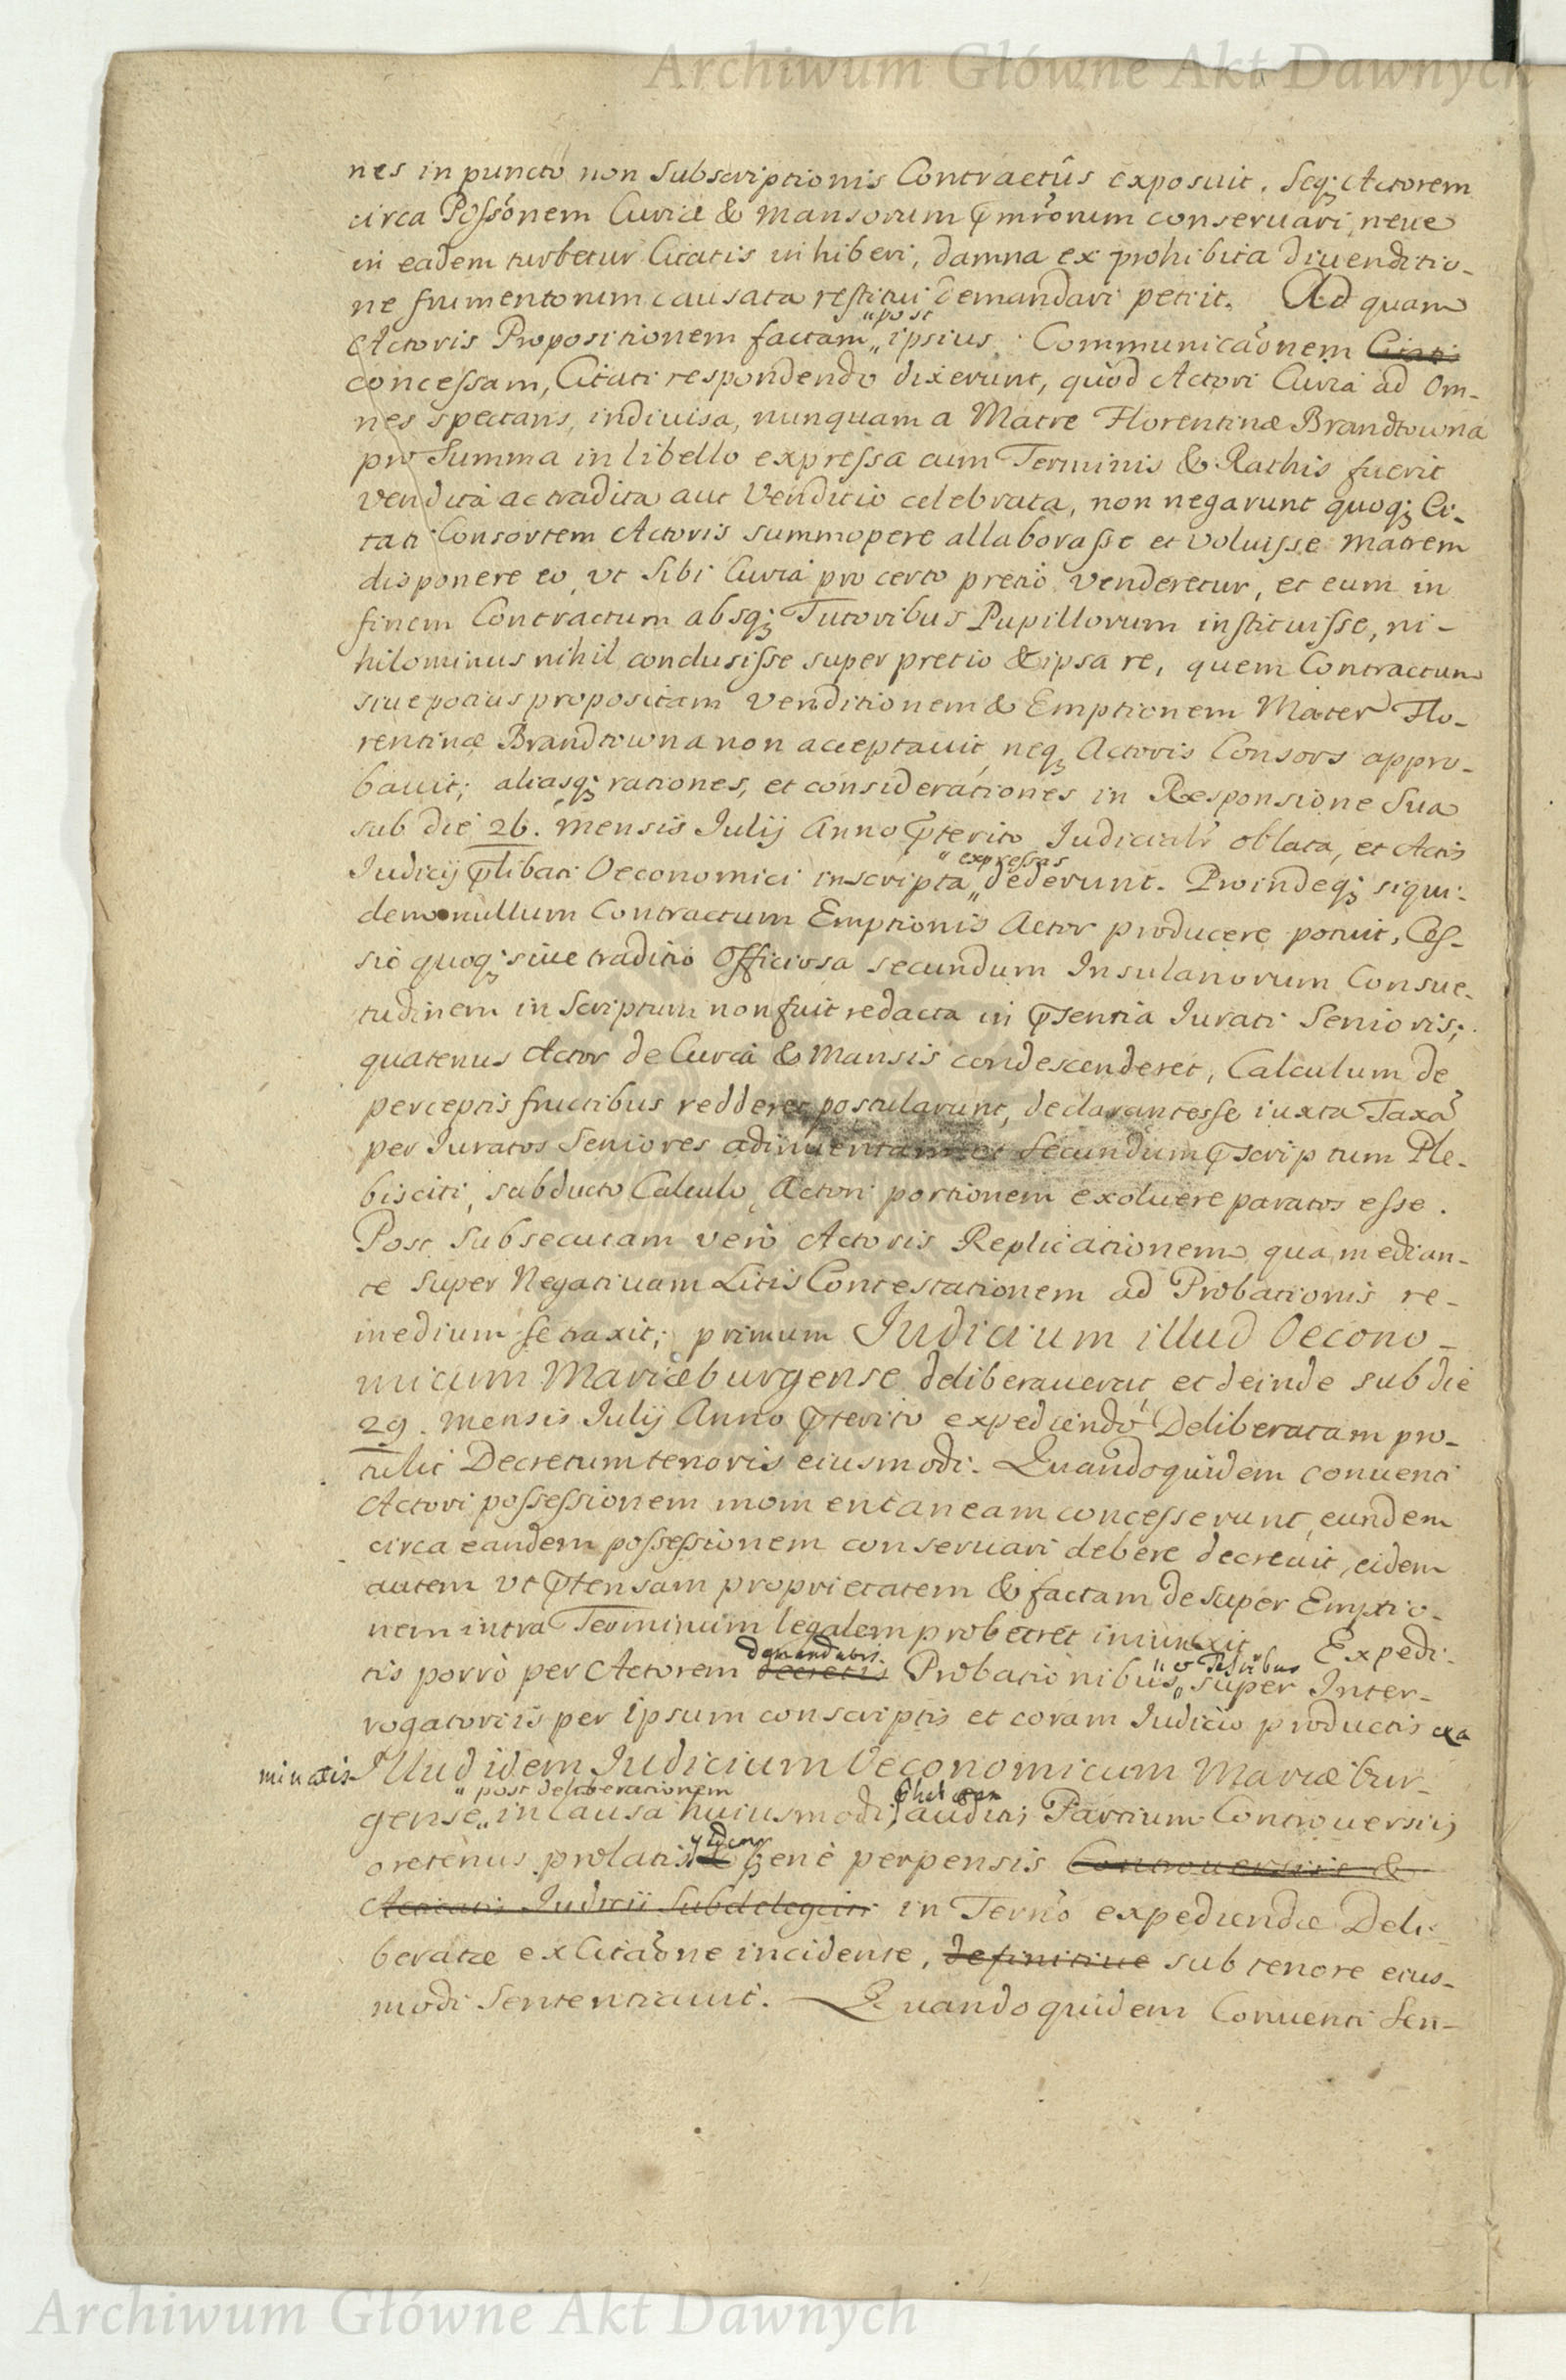 Archiwum Główne Akt Dawnych
nes in puncto non Subscriptionis Contractûs exposuit. Seq; Actorem
circa Poss̃onem Curiæ & Mansorum p̃mrõrum conseruari, neue
in eadem turbetur Citatis inhiberi, damna ex prohibita diuenditio-
ne frumentorum causata restitui demandari petiit. Ad quam
"post
Actoris Propositionem factam „ ipsius Communicãonem Citati
concessam, Citati respondendo dixerunt, quòd Actori Curia ad Om-
nes spectans, indiuisa, nunquam a Matre Florentinæ Brandtowna
pro Summa in libello expressa cum Terminis & Rathis fuerit
vendita ac tradita aut Venditio celebrata, non negarunt quoq; Ci-
tati Consortem Actoris summopere allaborasse et voluisse Matrem
disponere eo, vt Sibi Curia pro certo pretio venderetur, et eum in
finem Contractum absq; Tutoribus Pupillorum instituisse, ni-
hilominus nihil conclusisse super pretio & ipsa re, quem Contractum
siue potius propositam Venditionem & Emptionem Mater Flo-
rentinæ Brandtowna non acceptauit, neq; Actoris Consors appro-
bauit; aliasq; rationes, et considerationes in Responsione Sua
sub die 26. Mensis Iulij Anno p̃terito Judicialr̃ oblata, et Actis
" expressas
Judicij p̃libati Oeconomici inscripta „ dederunt. Proindeq; siqui-
dem nullum Contractum Emptionis Actor producere potuit, Ces-
sio quoq; siue traditio Officiosa secundum Insulanorum Consue-
tudinem in Scriptum non fuit redacta in p̃sentia Iurati Senioris;
quatenus Actor de Curia & Mansis condescenderet, Calculum de
perceptis fructibus redderet postularunt, declarantes se iuxta Taxã
per Iuratos Seniores adinuentam et Secundum p̃scriptum Ple-
bisciti, subducto Calculo, Actori portionem exoluere paratos esse.
Post Subsecutam verò Actoris Replicationem qua median-
te Super Negatiuam Litis Contestationem ad Probationis re-
medium se traxit; primum Judicium illud Oecono-
micum Mariæburgense deliberauerat et deinde sub die
29. Mensis Iulij Anno p̃terito expediendo Deliberatam pro-
tulit Decretum tenoris eiusmodi. Quandoquidem conuenti
Actori possessionem momentaneam concesserunt, eundem
circa eandem possessionem conseruari debere decreuit, eidem
autem vt p̃tensam proprietatem & factam desuper Emptio-
nem intra Terminum legalem probaret iniunxit. Expedi-
demandatis " & Testibus
tis porrò per Actorem decretis Probationibus „ super Inter-
rogatoriis per ipsum conscriptis et coram Iudicio productis exa
minatis Illud idem Judicium Oeconomicum Mariæbur-
" post deliberationem
gense „ in Causa huiusmodi, auditis Partium Controuersiis
oretenus prolatis bene perpensis Controuersiis &
Actitatis Judicii Subdelegati in Ternõ expediendæ Deli-
beratæ ex Citãone incidente, definitiue sub tenore eius-
modi Sententiauit. Quandoquidem Conuenti Sen-
Archiwum Główne Akt Dawnych